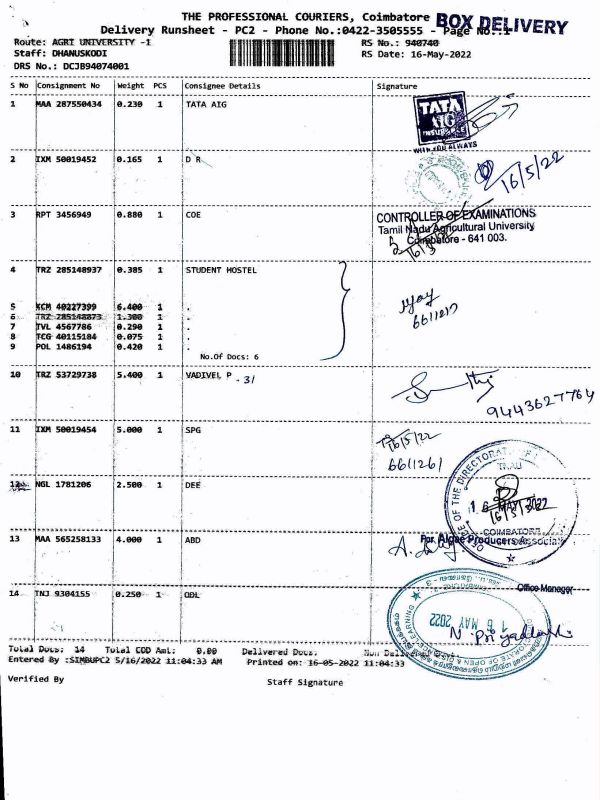 THE PROFESSIONAL COURIERS, Coimbatore
BOX DELIVERY
Delivery Runsheet - PC2 - Phone No.:0422-3505555 - Page No.:1
Route: AGRI UNIVERSITY -1
RS No.: 940740
Staff: DHANUSKODI
RS Date: 16-May-2022
DRS No.: DCJB94074001
S No Consignment No Weight PCS Consignee Details Signature
1 MAA 287550434 0.230 1 TATA AIG
TATA
AIG
INSURANCE
WITH YOU ALWAYS
2 IXM 50019452 0.165 1 D R
16/5/22
3 RPT 3456949 0.880 1 COE
CONTROLLER OF EXAMINATIONS
Tamil Nadu Agricultural University
Coimbatore - 641 003.
4 TRZ 285148937 0.385 1 STUDENT HOSTEL
5 KCM 40227399 6.400 1 .
6 TRZ 285148873 1.300 1 .
7 TVL 4567786 0.290 1 .
8 TCG 40115184 0.075 1 .
9 POL 1486194 0.420 1 .
No.Of Docs: 6
6611217
10 TRZ 53729738 5.400 1 VADIVEL P - 31
9443627764
11 IXM 50019454 5.000 1 SPG
16/5/22
6611261
12 NGL 1781206 2.500 1 DEE
OFFICE OF THE DIRECTORATE OF
TNAU
16 MAY 2022
COIMBATORE
13 MAA 565258133 4.000 1 ABD
For Algae Producers Associa
14 TNJ 9304155 0.250 1 ODL
Office Manager
16 MAY 2022
Total Docs: 14 Total COD Amt: 0.00 Delivered Docs: Non Deli
Entered By :SIMBUPC2 5/16/2022 11:04:33 AM Printed on: 16-05-2022 11:04:33
Verified By Staff Signature